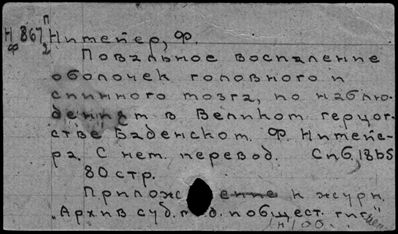 П
Н 867 Нимейер, Ф.
Ф 2
Повальное воспаление
оболочек головного и
спинного мозга, по наблю-
дениям в Великом герцог-
стве Баденском. Ф. Нимейе-
ра. С нем. перевод. Спб, 1865
80 стр.
Прилож ение к журн.
"Архив суд. мед. и общест. гиг